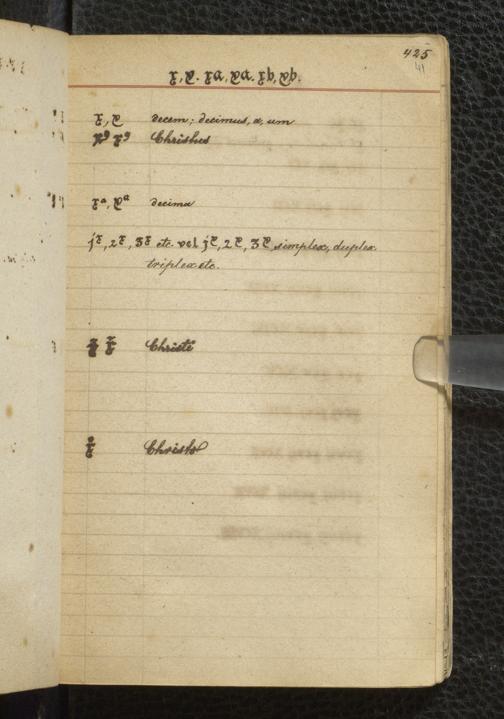 425
41
x, x. xa, xa. xb, xb.
x, x decem; decimus, a, um
x⁹ x⁹ Christus
xᵃ, xᵃ decima
jˣ, 2ˣ, 3ˣ etc. vel jˣ, 2ˣ, 3ˣ simplex, duplex
triplex etc.
Christi
Christo